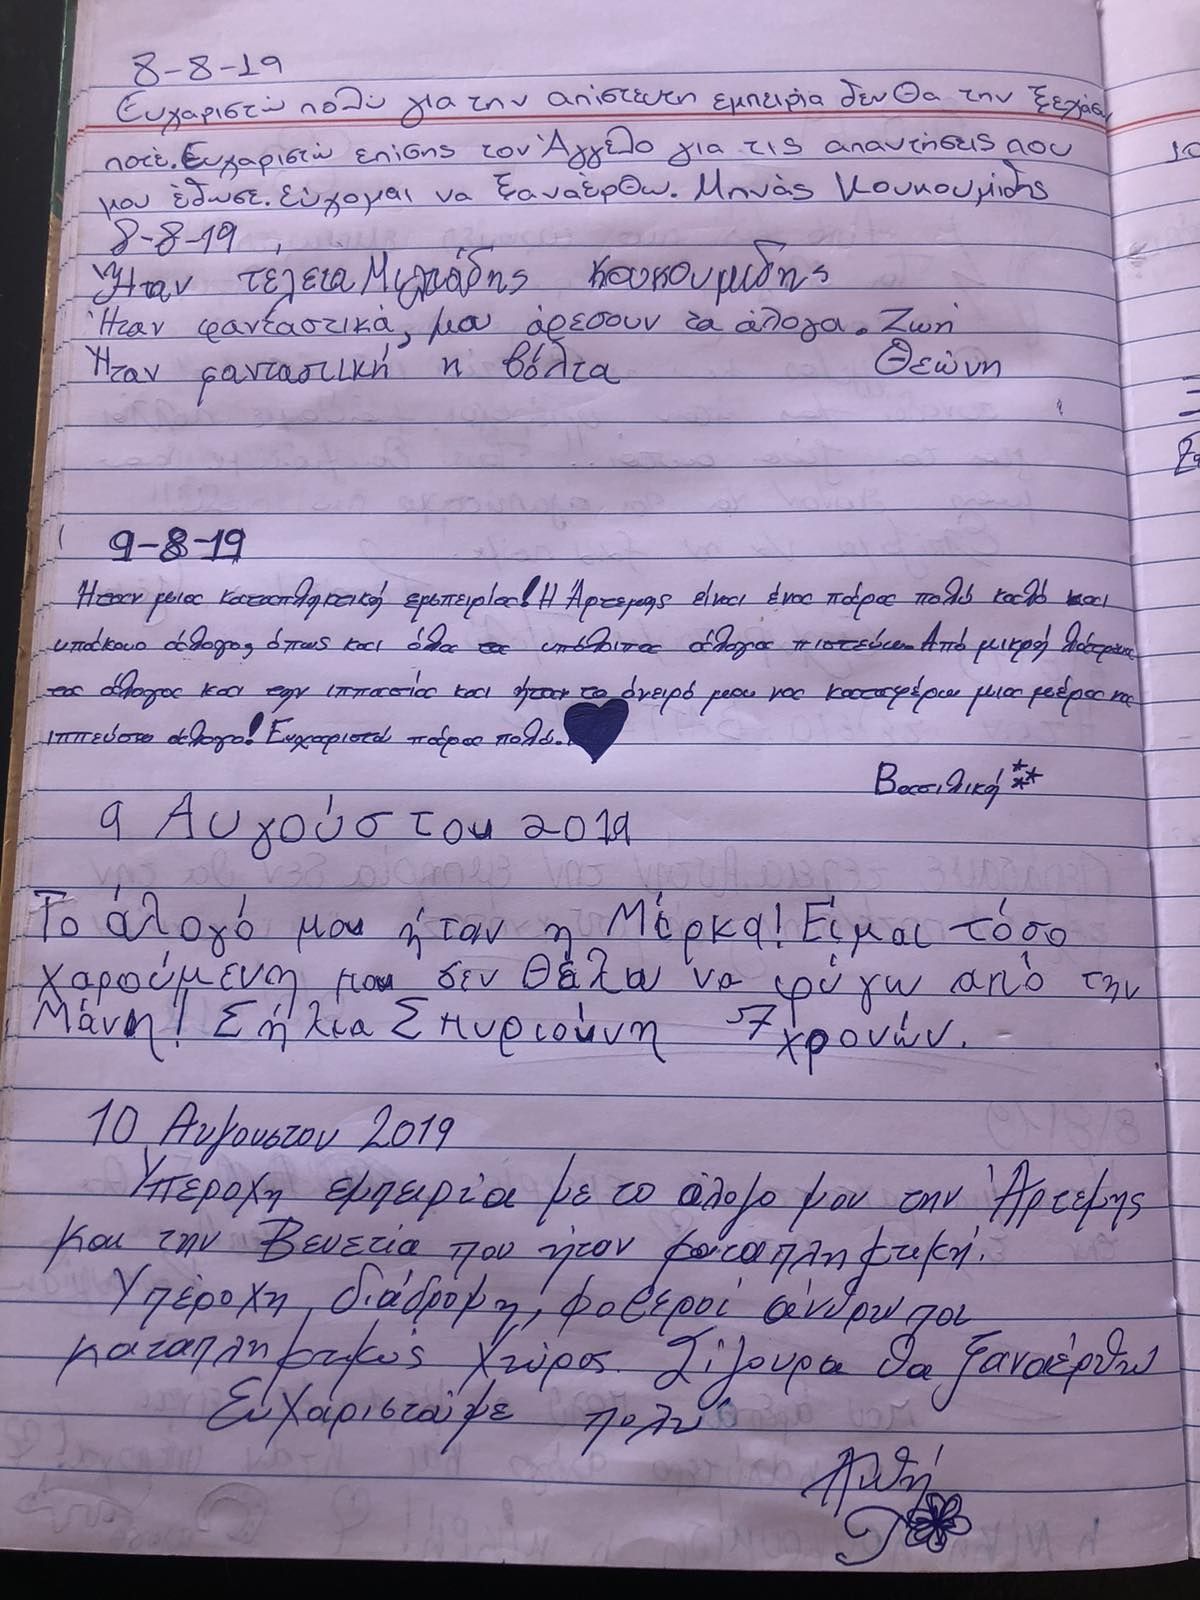 8-8-19
Ευχαριστώ πολύ για την απίστευτη εμπειρία δεν θα την ξεχάσω
ποτέ. Ευχαριστώ επίσης τον Άγγελο για τις απαντήσεις που
μου έδωσε. εύχομαι να ξαναέρθω. Μηνάς Κουκουμίδης
8-8-19
Ήταν τέλεια Μιλτιάδης Κουκουμιδης
Ήταν φανταστικά, μου άρεσουν τα άλογα. Ζωή
Ήταν φανταστική η βόλτα Θεώνη
9-8-19
Ήταν μια καταπληκτική εμπειρία! Η Άρτεμης είναι ένα πάρα πολύ καλό και
υπάκουο άλογο, όπως και όλα τα υπόλοιπα άλογα πιστεύω. Από μικρή λάτρευα
τα άλογα και την ιππασία και ήταν το όνειρό μου να καταφέρω μια μέρα να
ιππεύσω άλογο! Ευχαριστώ πάρα πολύ.
Βασιλική
9 Αυγούστου 2019
Το άλογό μου ήταν η Μέρκα! Είμαι τόσο
χαρούμενη που δεν θέλω να φύγω από την
Μάνη! Σήλια Σπυριούνη 7 χρονών.
10 Αυγουστου 2019
Υπέροχη εμπειρία με το άλογο μου την Άρτεμης
και την Βενετία που ήταν καταπληκτική.
Υπέροχη διάδρομη, φοβεροί άνθρωποι
καταπληκτικός χώρος. Σίγουρα θα ξαναέρθω
Ευχαριστούμε πολύ
Ανθή